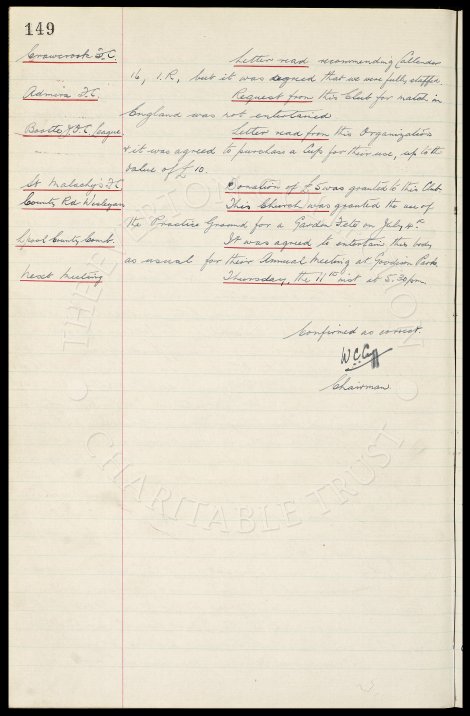 149
Crawcrook F.C. Letter read recommending Callender
16, I.R, but it was agreed that we were fully staffed.
Admira F.C. Request from this Club for match in
England was not entertained
Bootle J.F.C. League Letter read from this Organization
& it was agreed to purchase a Cup for their use, up to the
value of £10.
St Malachy's F.C. Donation of £5 was granted to this Club
County Rd Wesleyans This Church was granted the use of
the Practice Ground for a Garden Fete on July 4th.
Lpool County Comb. It was agreed to entertain this body
as usual for their Annual Meeting at Goodison Park
Next Meeting Thursday, the 11th inst at 5.30pm.
Confirmed as correct.
W C Cuff
Chairman.
THE EVERTON COLLECTION
CHARITABLE TRUST